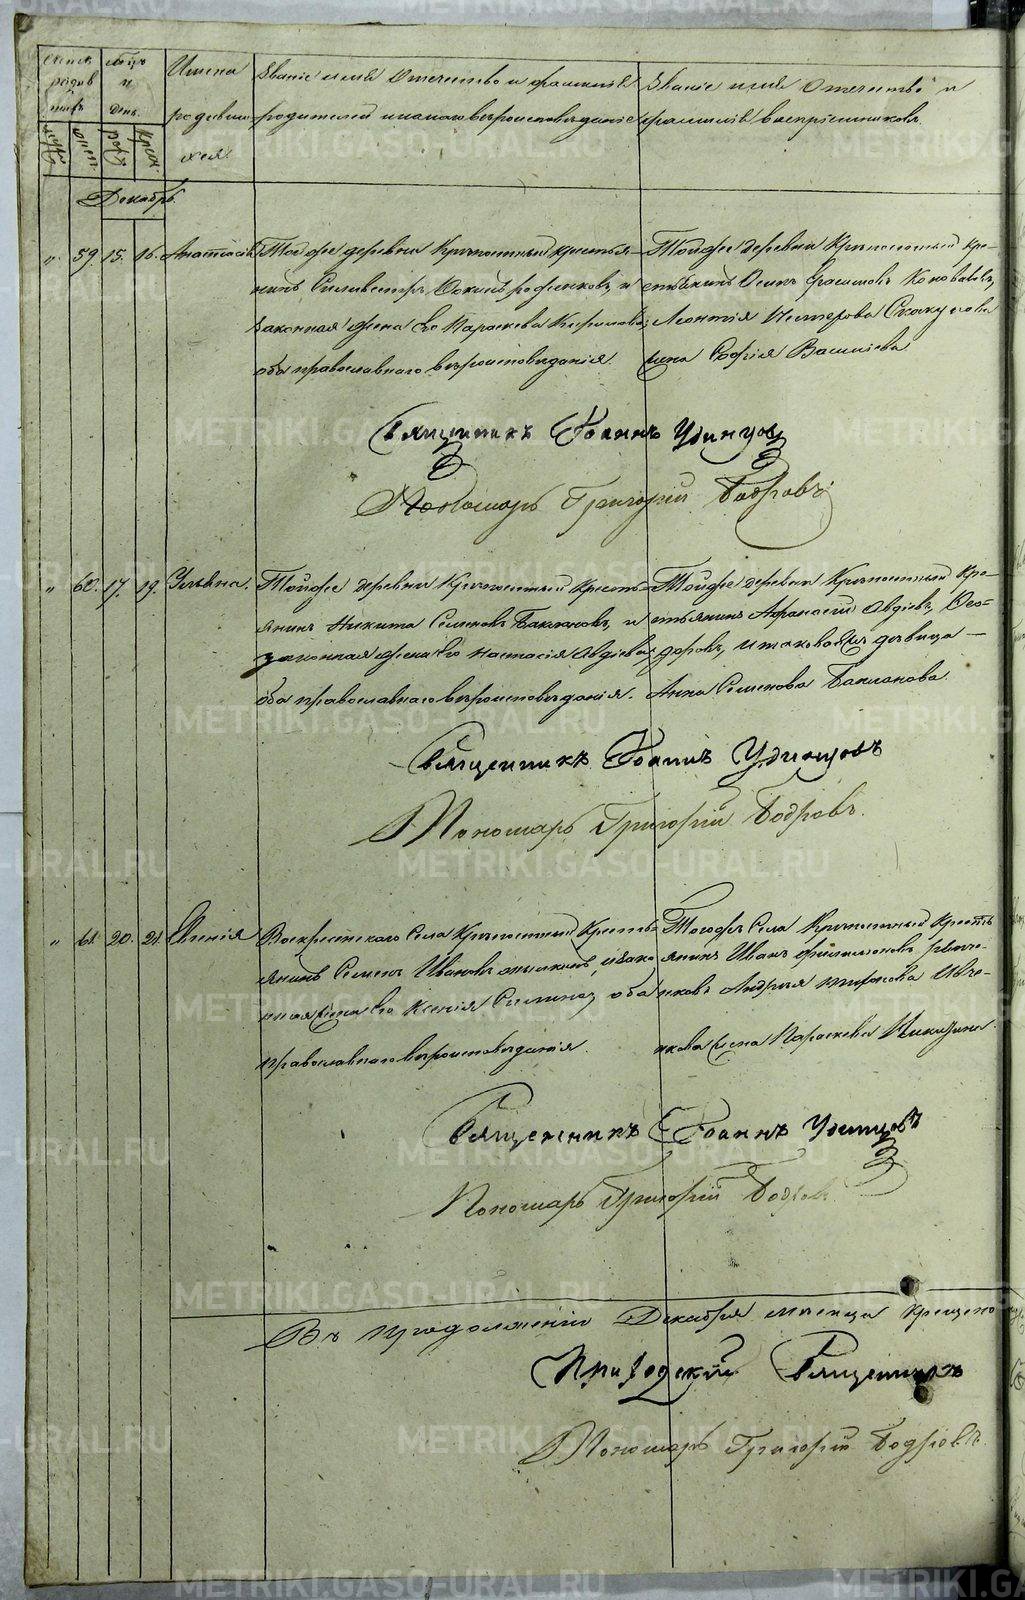 Счетъ родившихся
Мѣсяцъ и день
Имена родившихся
Званіе имя Отечество и фамилія родителей и какого вѣроисповѣданія
Званіе имя Отечество и фамилія воспріемниковъ
Декабрь
59. 15. 16. Анастасія
Тойже деревни Крѣпостный крестья-
нинъ Силивестръ и
законная жена его Параскева
оба православнаго вѣроисповѣданія.
Тойже деревни Крѣпостный кре-
стьянинъ Коновалов
Леонтія Нестерова
жена Софія Васильева
Священникъ Іоаннъ Удинцовъ
Пономарь Григорій Бодровъ
60. 17. 19. Ульяна.
Тойже деревни Крѣпостный Кресть-
янинъ Никита Семеновъ Баклановъ, и
законная жена его Настасія Авдіева,
оба православнаго вѣроисповѣданія.
Тойже деревни Крѣпостный Кре-
стьянинъ Афанасій Авдіевъ, Ѳео-
доровъ, и таковая дѣвица —
Анна Семенова Бакланова.
Священникъ Іоаннъ Удинцовъ
Пономарь Григорій Бодровъ.
61. 20. 21. Евгенія
Воскресенскаго Села Крѣпостный Кресть-
янинъ Семенъ Ивановъ и зако
нная жена его Ксенія оба
православнаго вѣроисповѣданія.
Тогоже Села Крѣпостный Кресть
янинъ Иванъ Филимоновъ
нковъ Андрея
нкова жена Параскева Никитина.
Священникъ Іоаннъ Удинцовъ
Пономарь Григорій Бодровъ
Въ продолженіи Декабря мѣсяца крещено
Приходскій Священникъ
Пономарь Григорій Бодровъ.
METRIKI.GASO-URAL.RU